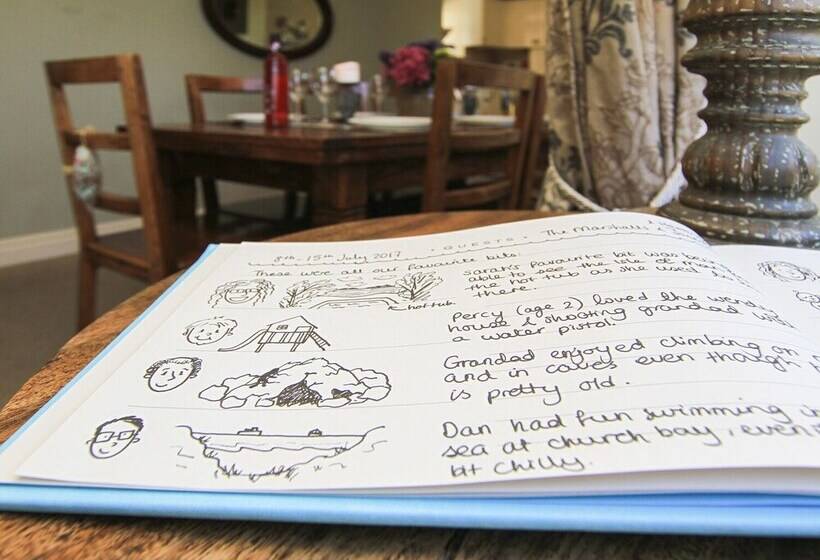 8th - 15th July 2017 · GUESTS · The Marshalls
These were all our favourite bits:
Sarah's favourite bit was being
able to see the isle of
the hot tub as she used
there.
hot tub
Percy (age 2) loved the wend
house & shooting grandad wi
a water pistol.
Grandad enjoyed climbing on
and in caves even though
is pretty old.
Dan had fun swimming in
sea at church bay, even
bit chilly.